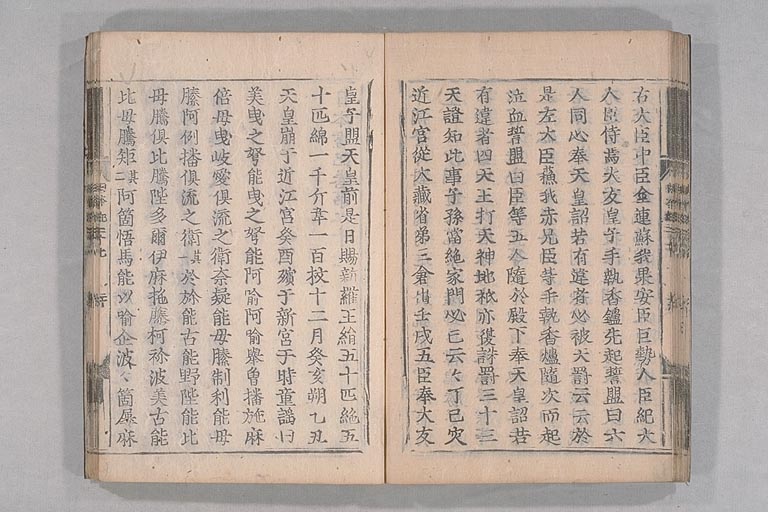 右大臣中臣金連蘇我果安臣巨勢人臣紀大
人臣侍焉大友皇子手執香鑪先起誓盟曰六
人同心奉天皇詔若有違者必被天罰云云於
是左大臣蘇我赤兄臣等手執香爐隨次而起
泣血誓盟曰臣等五人隨於殿下奉天皇詔若
有違者四天王打天神地祇亦復誅罰三十三
天證知此事子孫當絶家門必亡云々丁巳灾
近江宮從大藏省第三倉出壬戌五臣奉大友
皇子盟天皇前是日賜新羅王絹五十匹絁五
十匹綿一千斤韋一百枚十二月癸亥朔乙丑
天皇崩于近江宮癸酉殯于新宮于時童謡曰
美曳之弩能曳之弩能阿喻阿喻擧曾播施麻
倍母曳岐愛倶流之衛奈疑能母騰制利能母
騰阿例播倶流之衛其一於弥能古能野陛能比
母騰倶比騰陛多爾伊麻拖藤柯祢波美古能
比母騰矩其二阿箇悟馬能以喻企波々箇屢麻